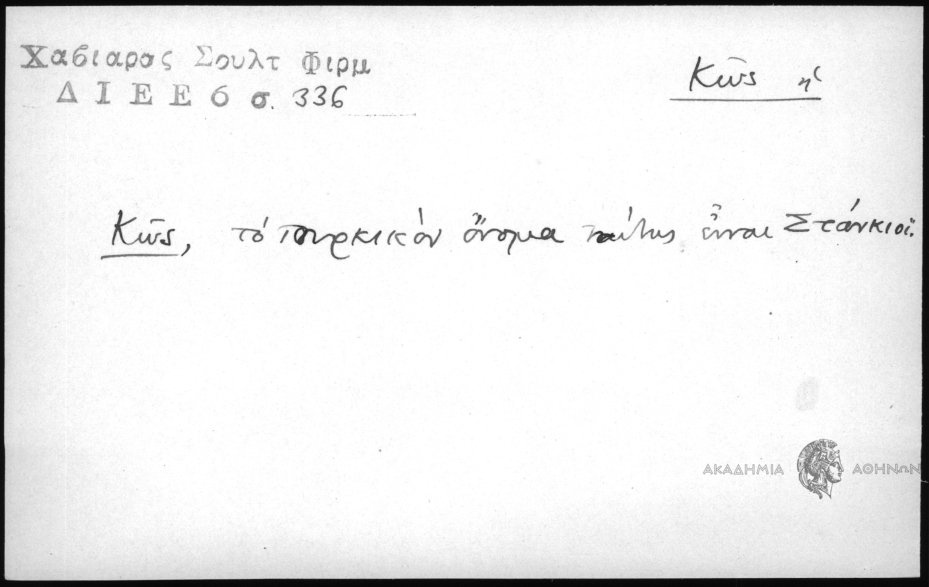 Χαβιαρας Σουλτ Φιρμ
Δ Ι Ε Ε 6 σ. 336
Κῶς ἡ
Κῶς, τό τουρκικόν ὄνομα ταύτης εἶναι Στάνκιοϊ.
ΑΚΑΔΗΜΙΑ ΑΘΗΝΩΝ